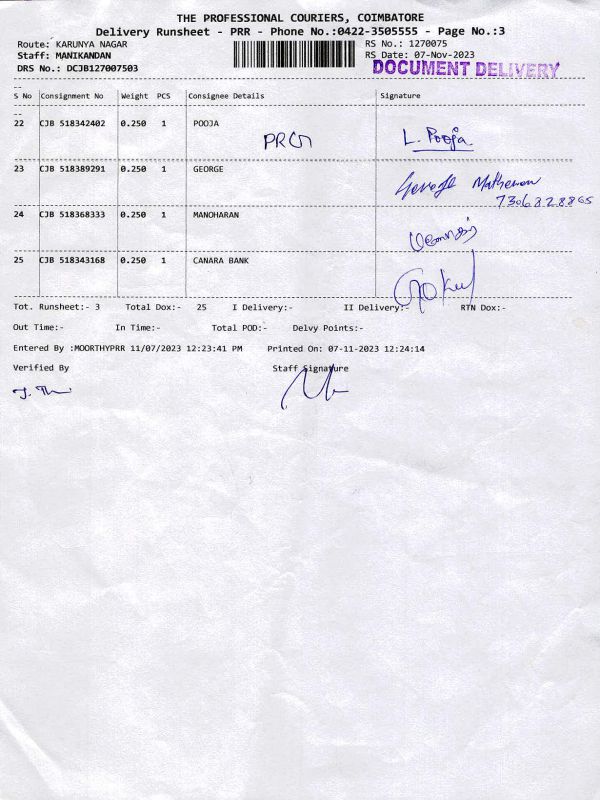 THE PROFESSIONAL COURIERS, COIMBATORE
Delivery Runsheet - PRR - Phone No.:0422-3505555 - Page No.:3
Route: KARUNYA NAGAR RS No.: 1270075
Staff: MANIKANDAN RS Date: 07-Nov-2023
DRS No.: DCJB127007503 DOCUMENT DELIVERY
S No Consignment No Weight PCS Consignee Details Signature
22 CJB 518342402 0.250 1 POOJA
L. Pooja
23 CJB 518389291 0.250 1 GEORGE
George
7306828865
24 CJB 518368333 0.250 1 MANOHARAN
25 CJB 518343168 0.250 1 CANARA BANK
Gokul
Tot. Runsheet:- 3 Total Dox:- 25 I Delivery:- II Delivery:- RTN Dox:-
Out Time:- In Time:- Total POD:- Delvy Points:-
Entered By :MOORTHYPRR 11/07/2023 12:23:41 PM Printed On: 07-11-2023 12:24:14
Verified By Staff Signature